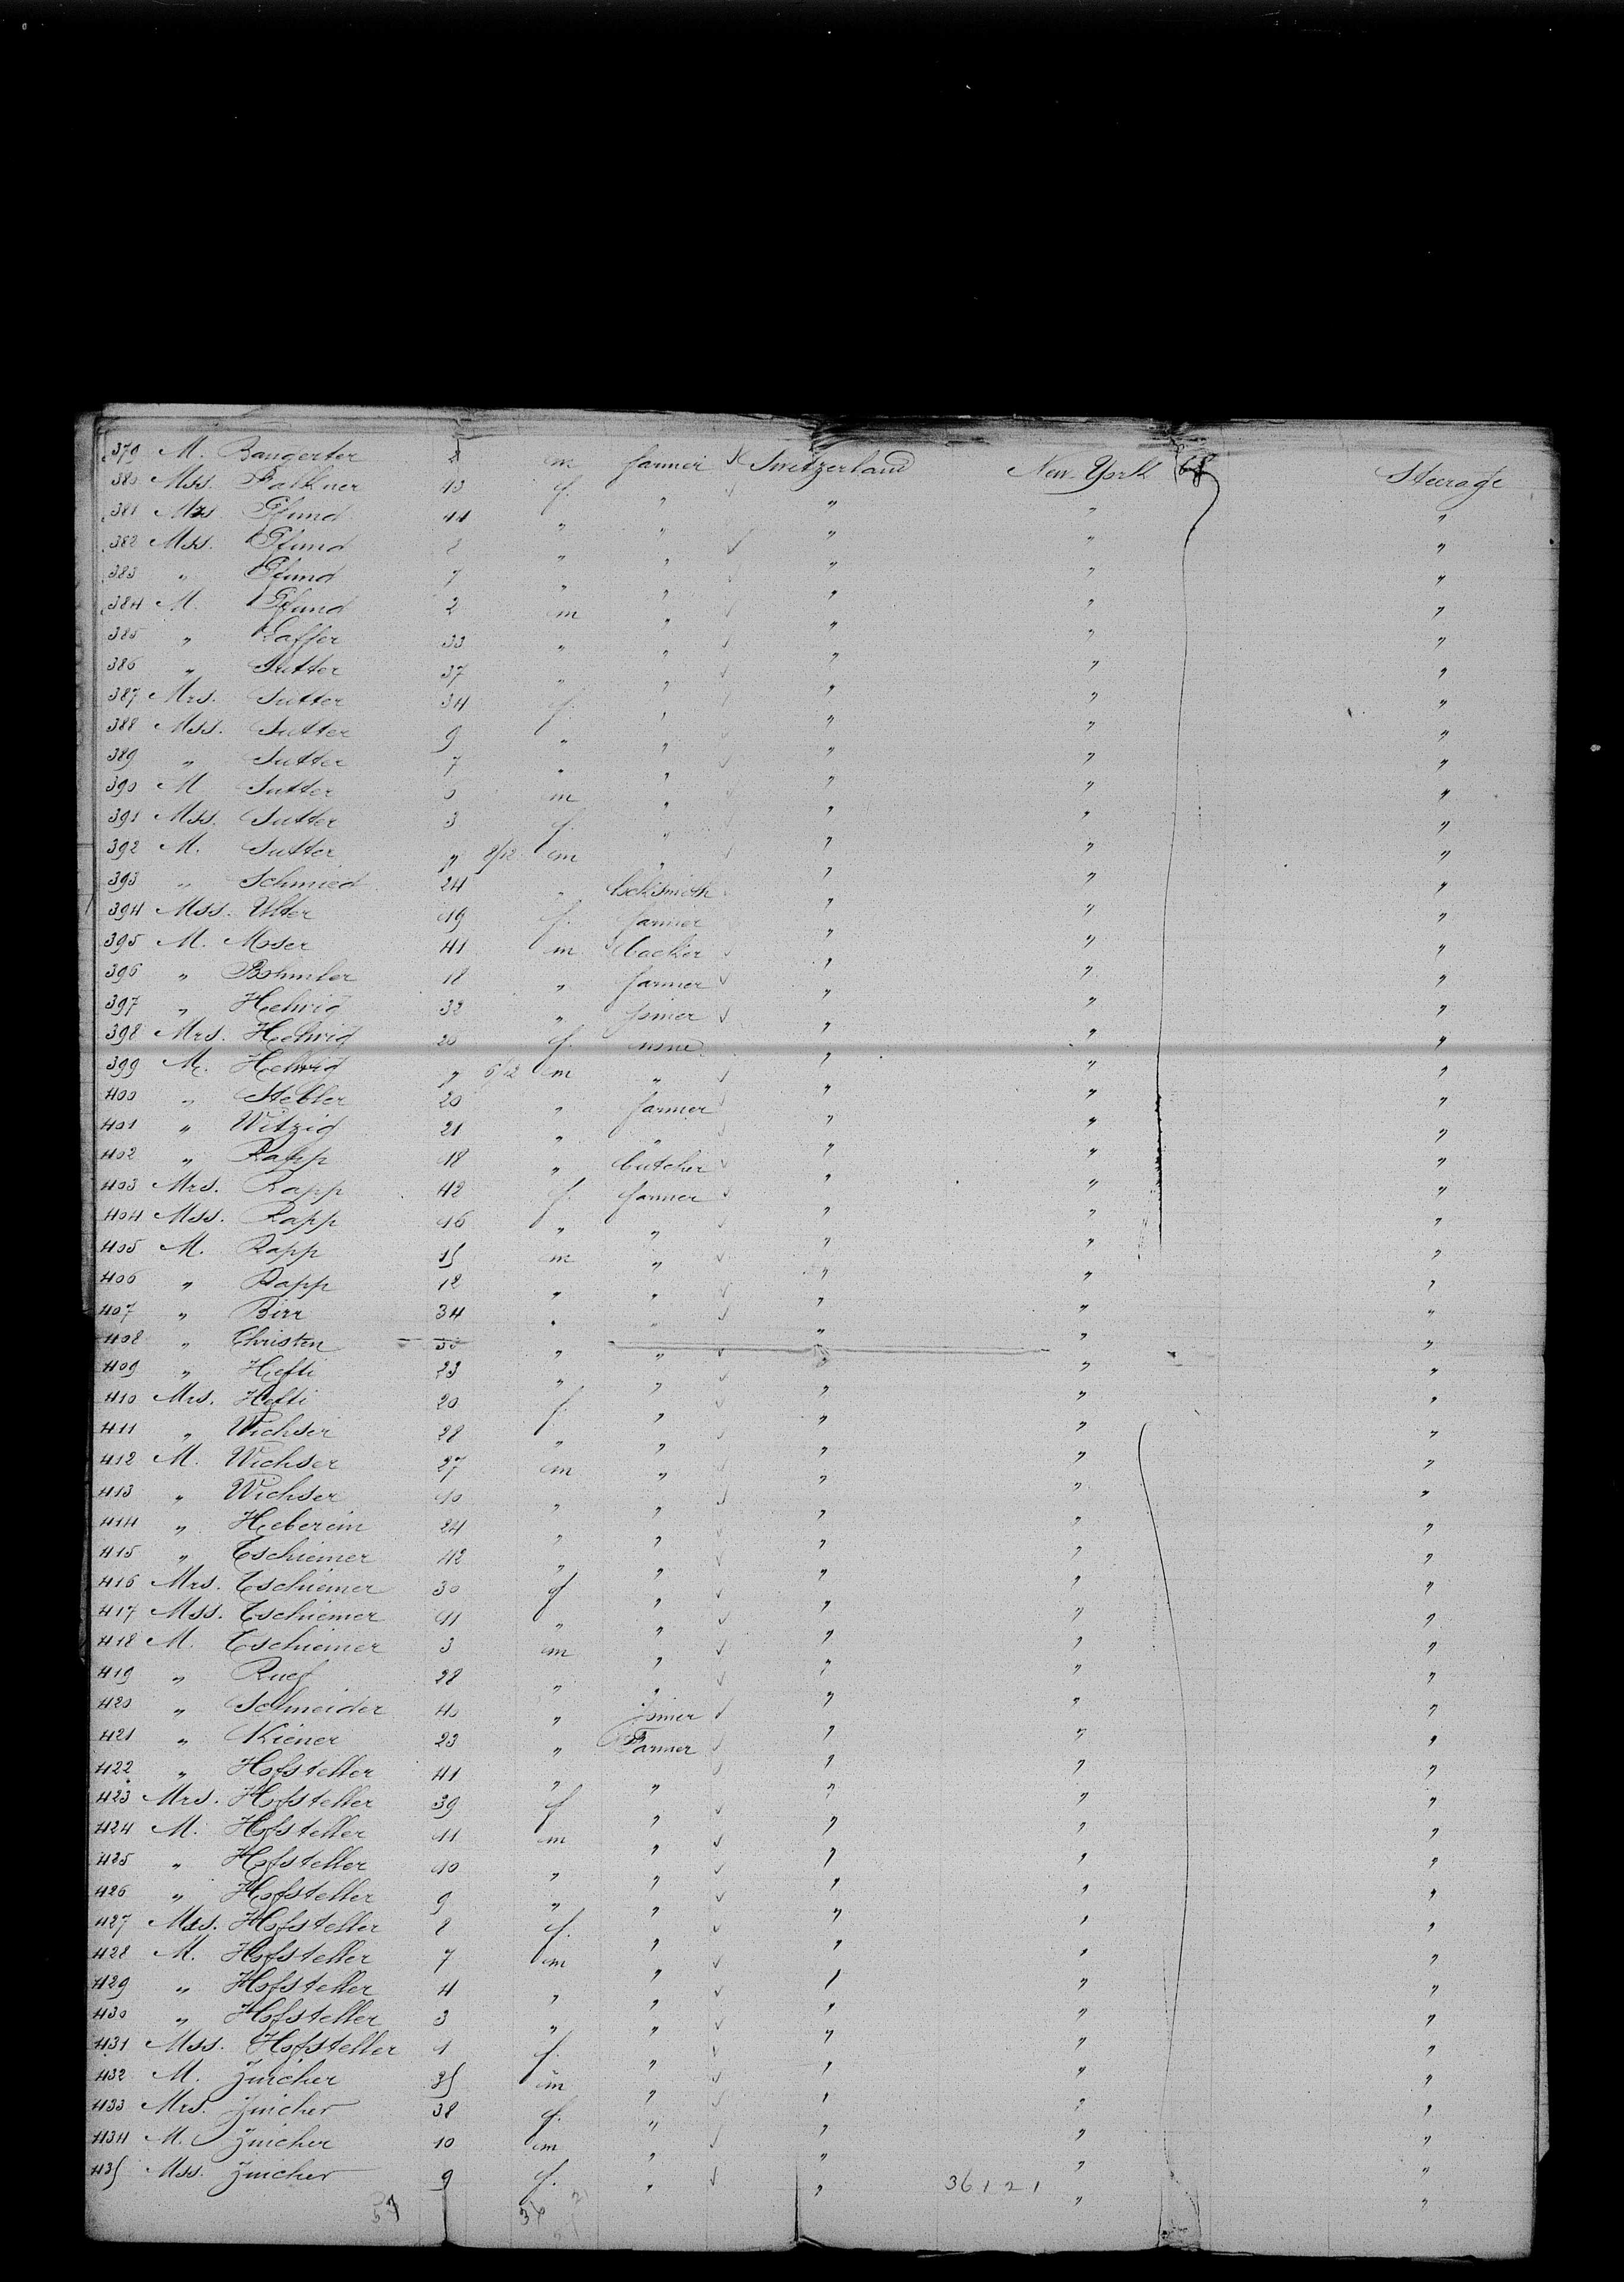 379 M. Bangerter 2 m farmer √ Switzerland New-York 68 Steerage
380 Mss. Falkner 43 f. " √ " " "
381 Mrs Pfund 44 " " " " "
382 Mss. Pfund 8 " " √ " " "
383 " Pfund 7 " " √ " " "
384 M. Pfund 2 m " √ " " "
385 " Laffer 33 " " √ " " "
386 " Sutter 37 " " √ " " "
387 Mrs. Sutter 34 f. " √ " " "
388 Mss. Sutter 9 " " √ " " "
389 " Sutter 7 " " √ " " "
390 M Sutter 5 m " √ " " "
391 Mss. Sutter 3 f. " √ " " "
392 M. Sutter " 8/12 m " √ " " "
393 " Schmied 24 " locksmith √ " " "
394 Mss. Ulter 19 f. farmer " " "
395 M. Moser 41 m backer √ " " "
396 " Bohmler 18 " farmer √ " " "
397 " Helwig 32 " joiner √ " " "
398 Mrs. Helwig 20 f. none " " "
399 M. Helwig " 6/12 m " √ " " "
400 " Stebler 20 " farmer √ " " "
401 " Witzig 21 " " √ " " "
402 " Rapp 18 " butcher √ " " "
403 Mrs. Rapp 42 f. farmer √ " " "
404 Mss. Rapp 16 " " √ " " "
405 M. Rapp 15 m " √ " " "
406 " Rapp 12 " " √ " " "
407 " Birr 34 " " √ " " "
408 " Christen " " √ " " "
409 " Hefti 23 " " √ " " "
410 Mrs. Hefti 20 f. " √ " " "
411 " Wichser 28 " " √ " " "
412 M. Wichser 27 m " √ " " "
413 " Wichser 10 " " √ " " "
414 " Heberein 24 " " √ " " "
415 " Tschiemer 42 " " √ " " "
416 Mrs. Tschiemer 30 f " √ " " "
417 Mss. Tschiemer 11 " " √ " " "
418 M. Tschiemer 3 m " √ " " "
419 " Ruef 28 " " √ " " "
420 " Schneider 40 " joiner √ " " "
421 " Kiener 23 " Farmer √ " " "
422 " Hofsteller 41 " " √ " " "
423 Mrs. Hofsteller 39 f " √ " " "
424 M. Hofsteller 11 m " √ " " "
425 " Hofsteller 10 " " √ " " "
426 " Hofsteller 9 " " √ " " "
427 Mss. Hofsteller 8 f. " √ " " "
428 M. Hofsteller 7 m " √ " " "
429 " Hofsteller 4 " " √ " " "
430 " Hofsteller 3 " " √ " " "
431 Mss. Hofsteller 1 f. " √ " " "
432 M. Zuicher 35 m " √ " " "
433 Mrs. Zuicher 38 f. " √ " " "
434 M. Zuicher 10 m " √ " " "
435 Mss. Zuicher 9 f. " √ " " "
36121